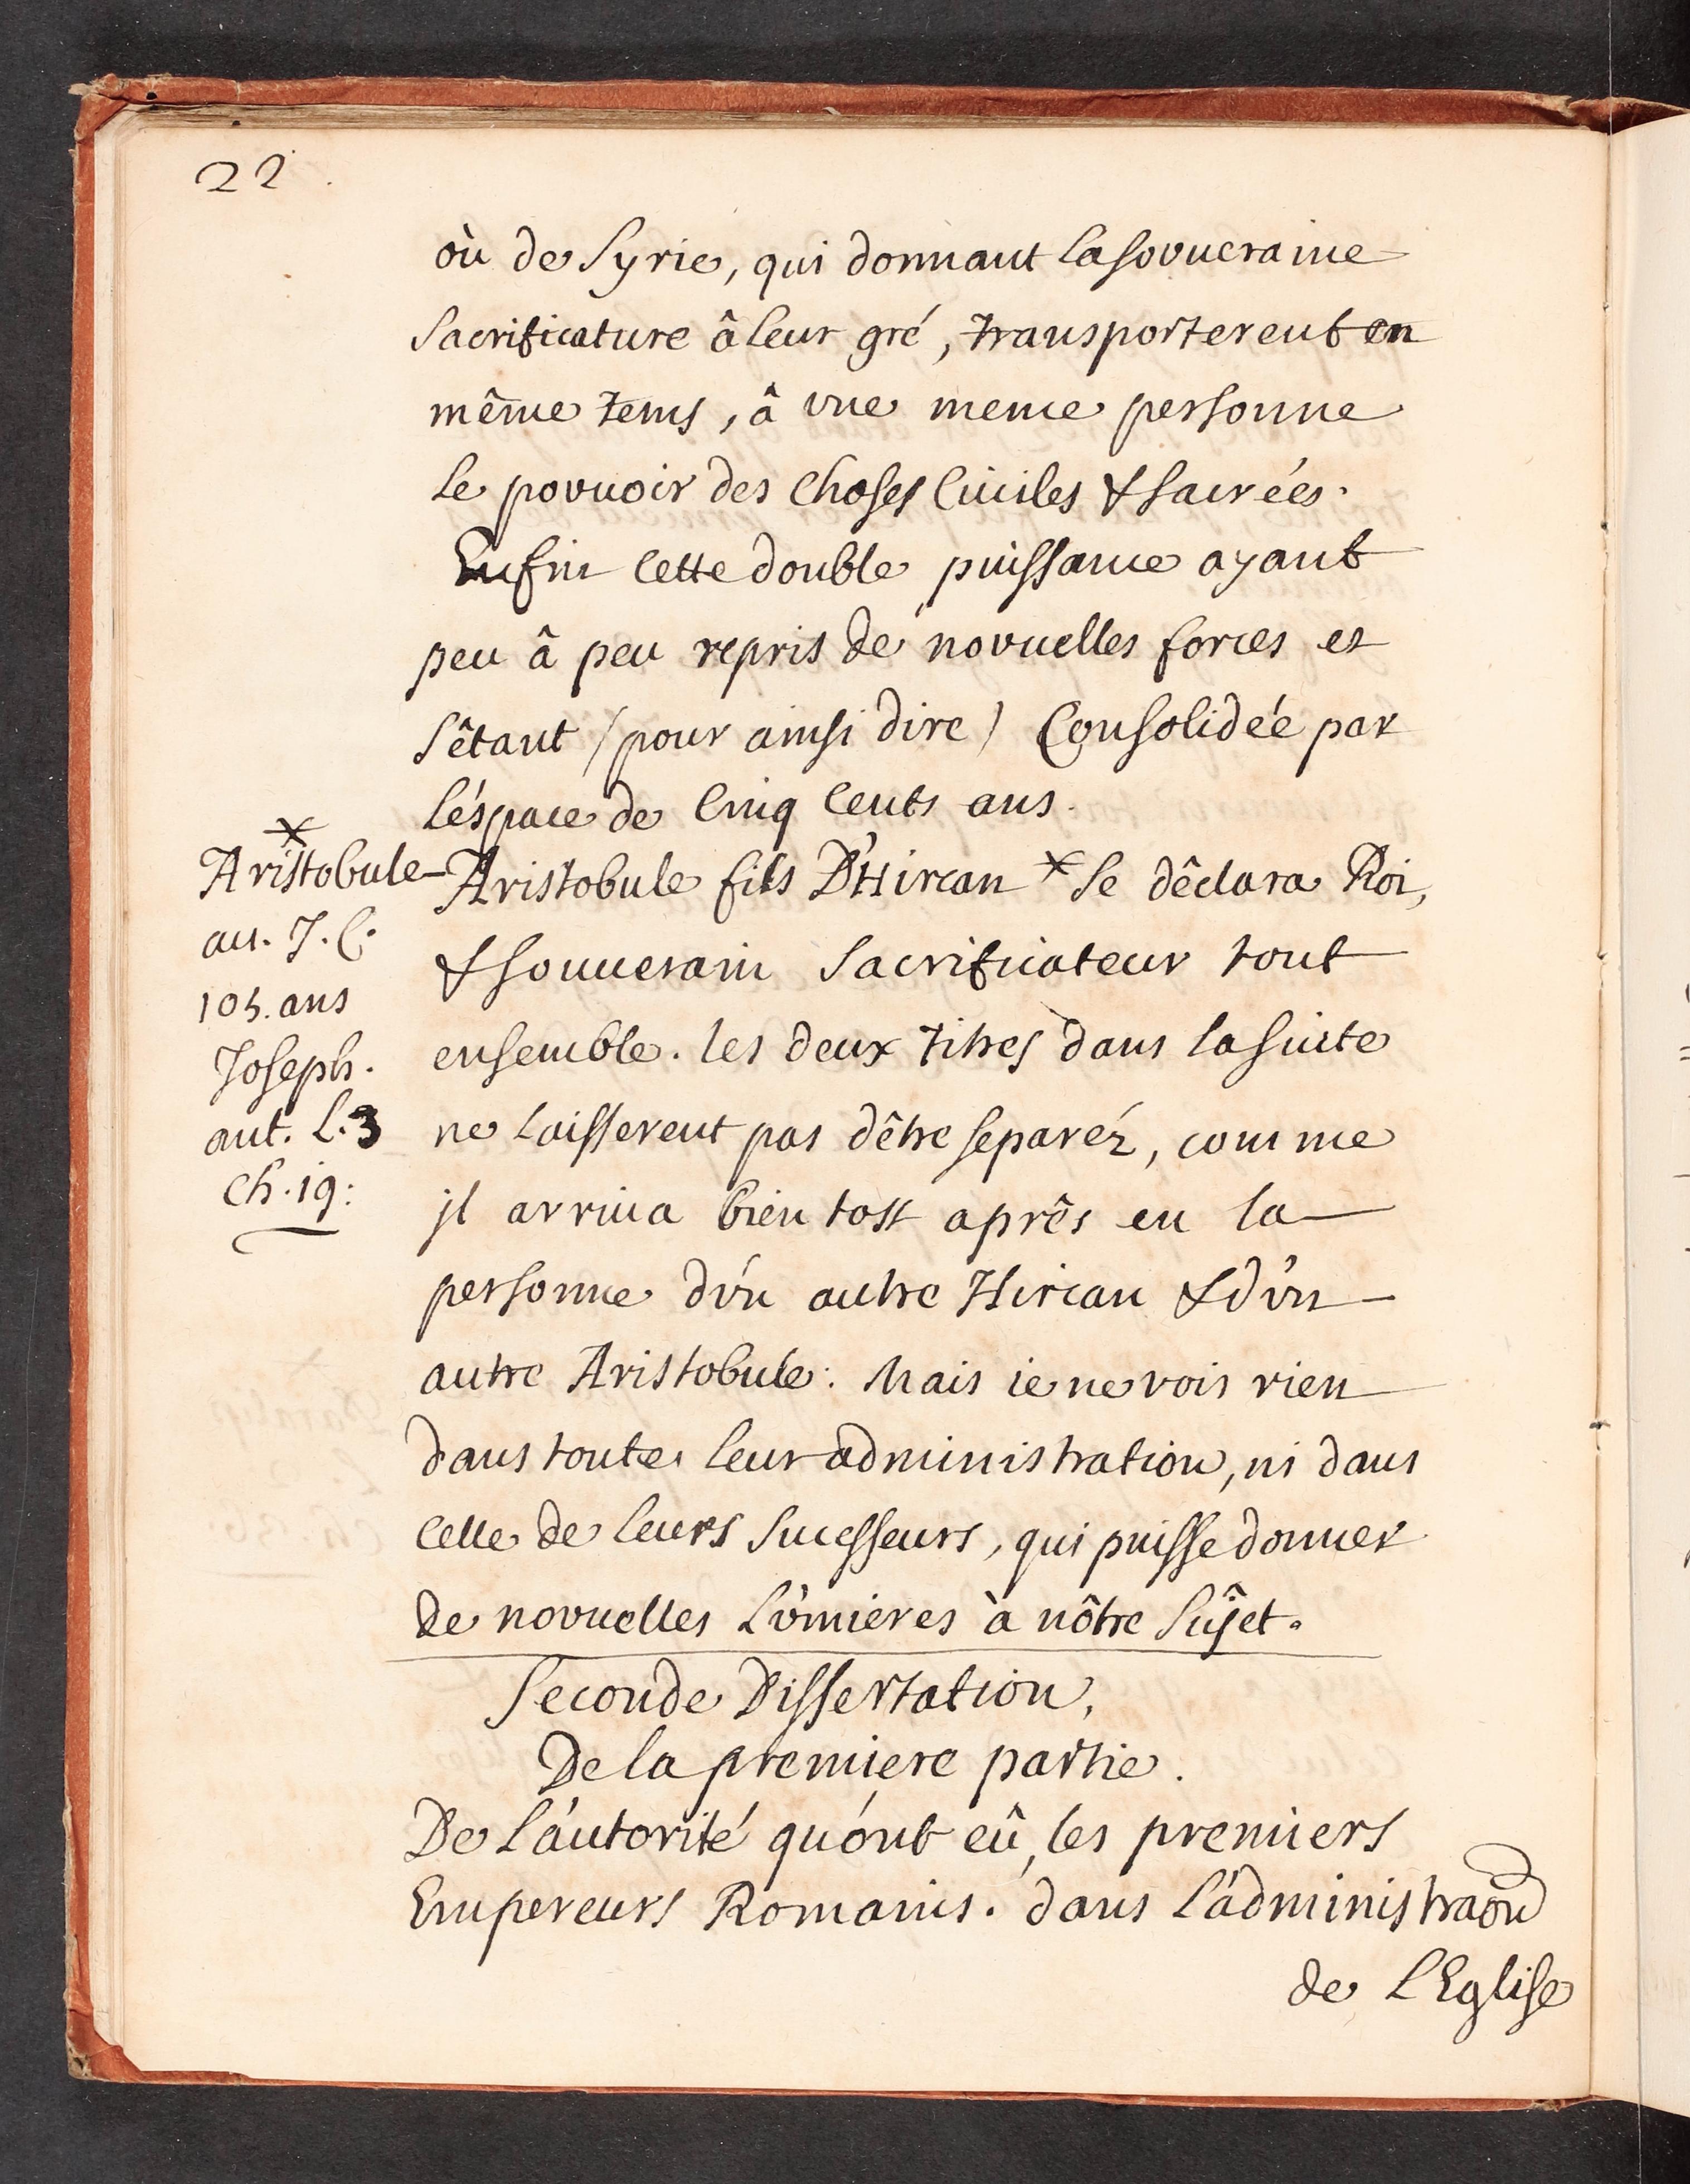 22
où de Syrie, qui donnant la sovueraine
Sacrificature â leur gré, transporterent en
même tems, â vne meme personne
le povuoir des choses Civiles & sacrées.
Enfin cette double puissance ayant
peu â peu repris de novuelles forces et
s'êtant (pour ainsi dire) Consolidée par
l'éspace de Cinq Cents ans.
Aristobule fils D'Hircan * se dêclara Roi,
& souuerain Sacrificateur tout
ensemble. les deux titres dans la suite
ne laisserent pas d'être separéz, comme
jl arriua bien tost aprês en la
personne d'vn autre Hircan & d'vn
autre Aristobule: Mais ie ne vois rien
dans toute leur administration, ni dans
celle de leurs Sucesseurs, qui puisse donner
de novuelles Lûmieres à nôtre Sûjet.
*
Aristobule
au. J. C.
105. ans
Joseph.
ant. L. 3
Ch. 19:
Seconde Dissertation,
De la premiere partie.
De L'autorité qu'ont eû, les premiers
Empereurs Romains. dans L'administraõn
de L'Eglise